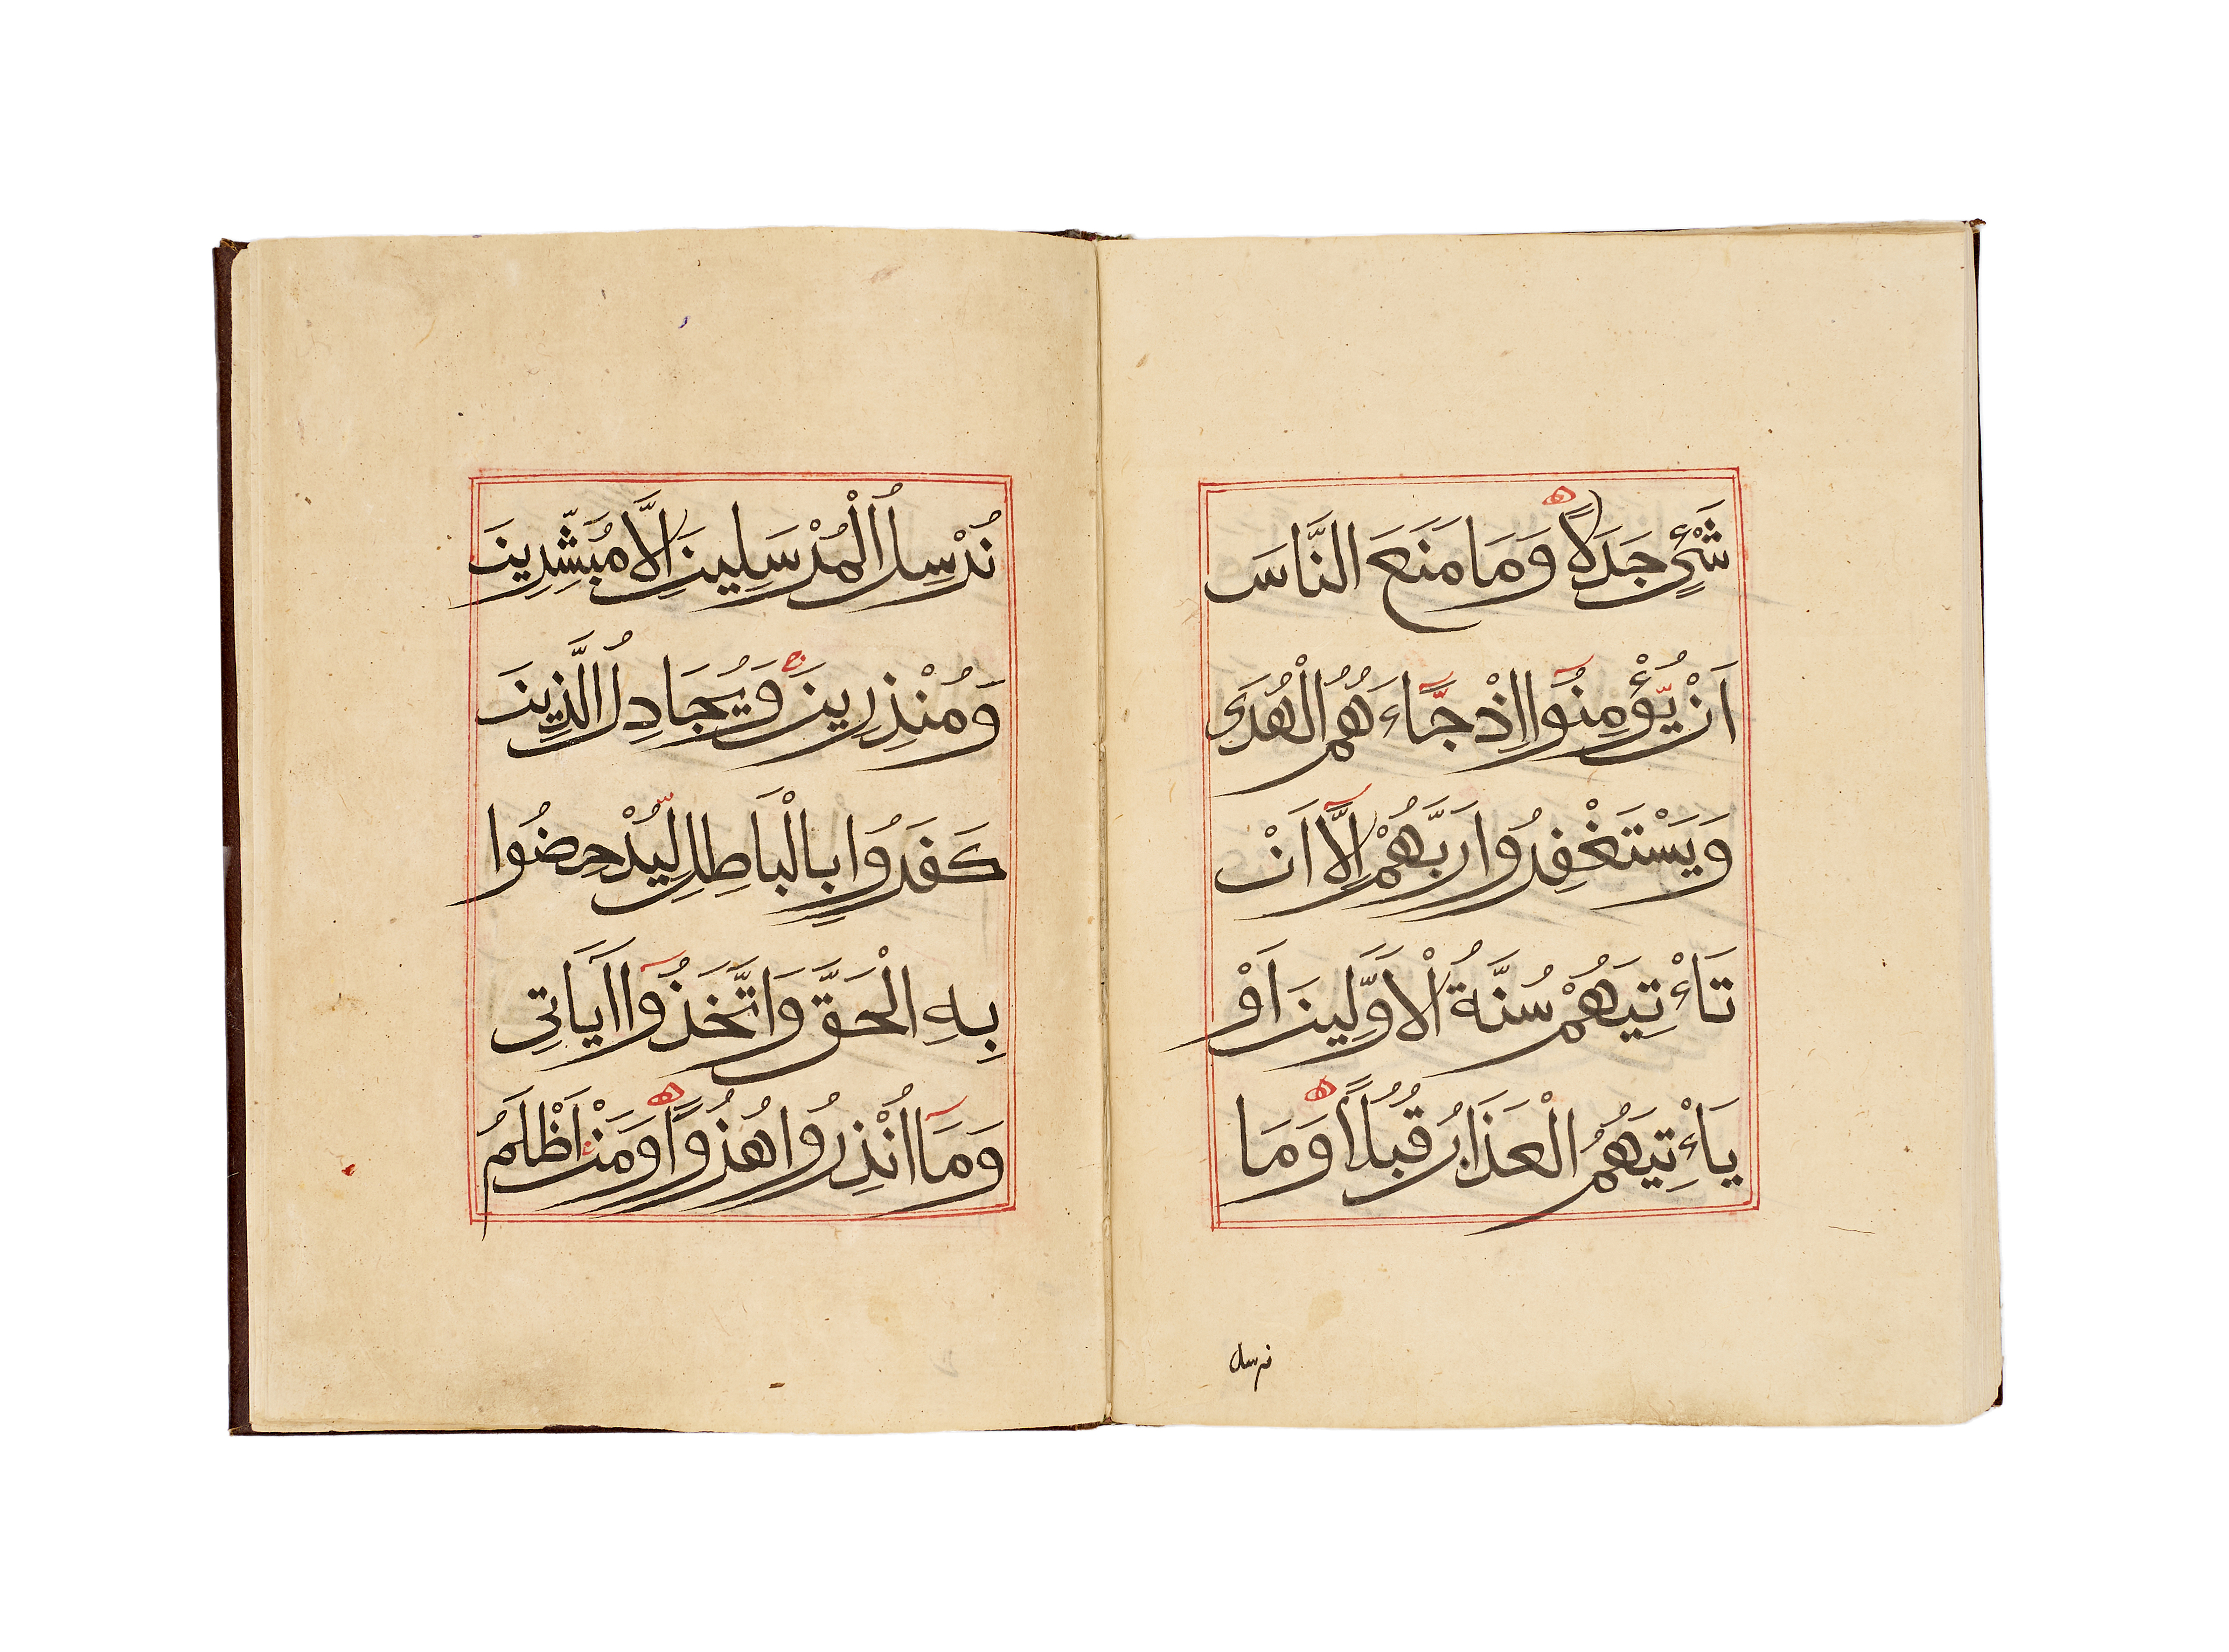 شَيْءٍ جَدَلًا ه وَمَا مَنَعَ النَّاسَ
اَنْ يُّؤْمِنُوا اِذْ جَاءَهُمُ الْهُدَى
وَيَسْتَغْفِرُوا رَبَّهُمْ اِلَّا اَنْ
تَاْءتِيَهُمْ سُنَّةُ الْاَوَّلِينَ اَوْ
يَاْءتِيَهُمُ الْعَذَابُ قُبُلًا ه وَمَا
نرسل
نُرْسِلُ الْمُرْسَلِينَ اِلَّا مُبَشِّرِينَ
وَمُنْذِرِينَ ج وَيُجَادِلُ الَّذِينَ
كَفَرُوا بِالْبَاطِلِ لِيُدْحِضُوا
بِهِ الْحَقَّ وَاتَّخَذُوا اَيَاتِى
وَمَا اُنْذِرُوا هُزُوًا ه وَمَنْ اَظْلَمُ